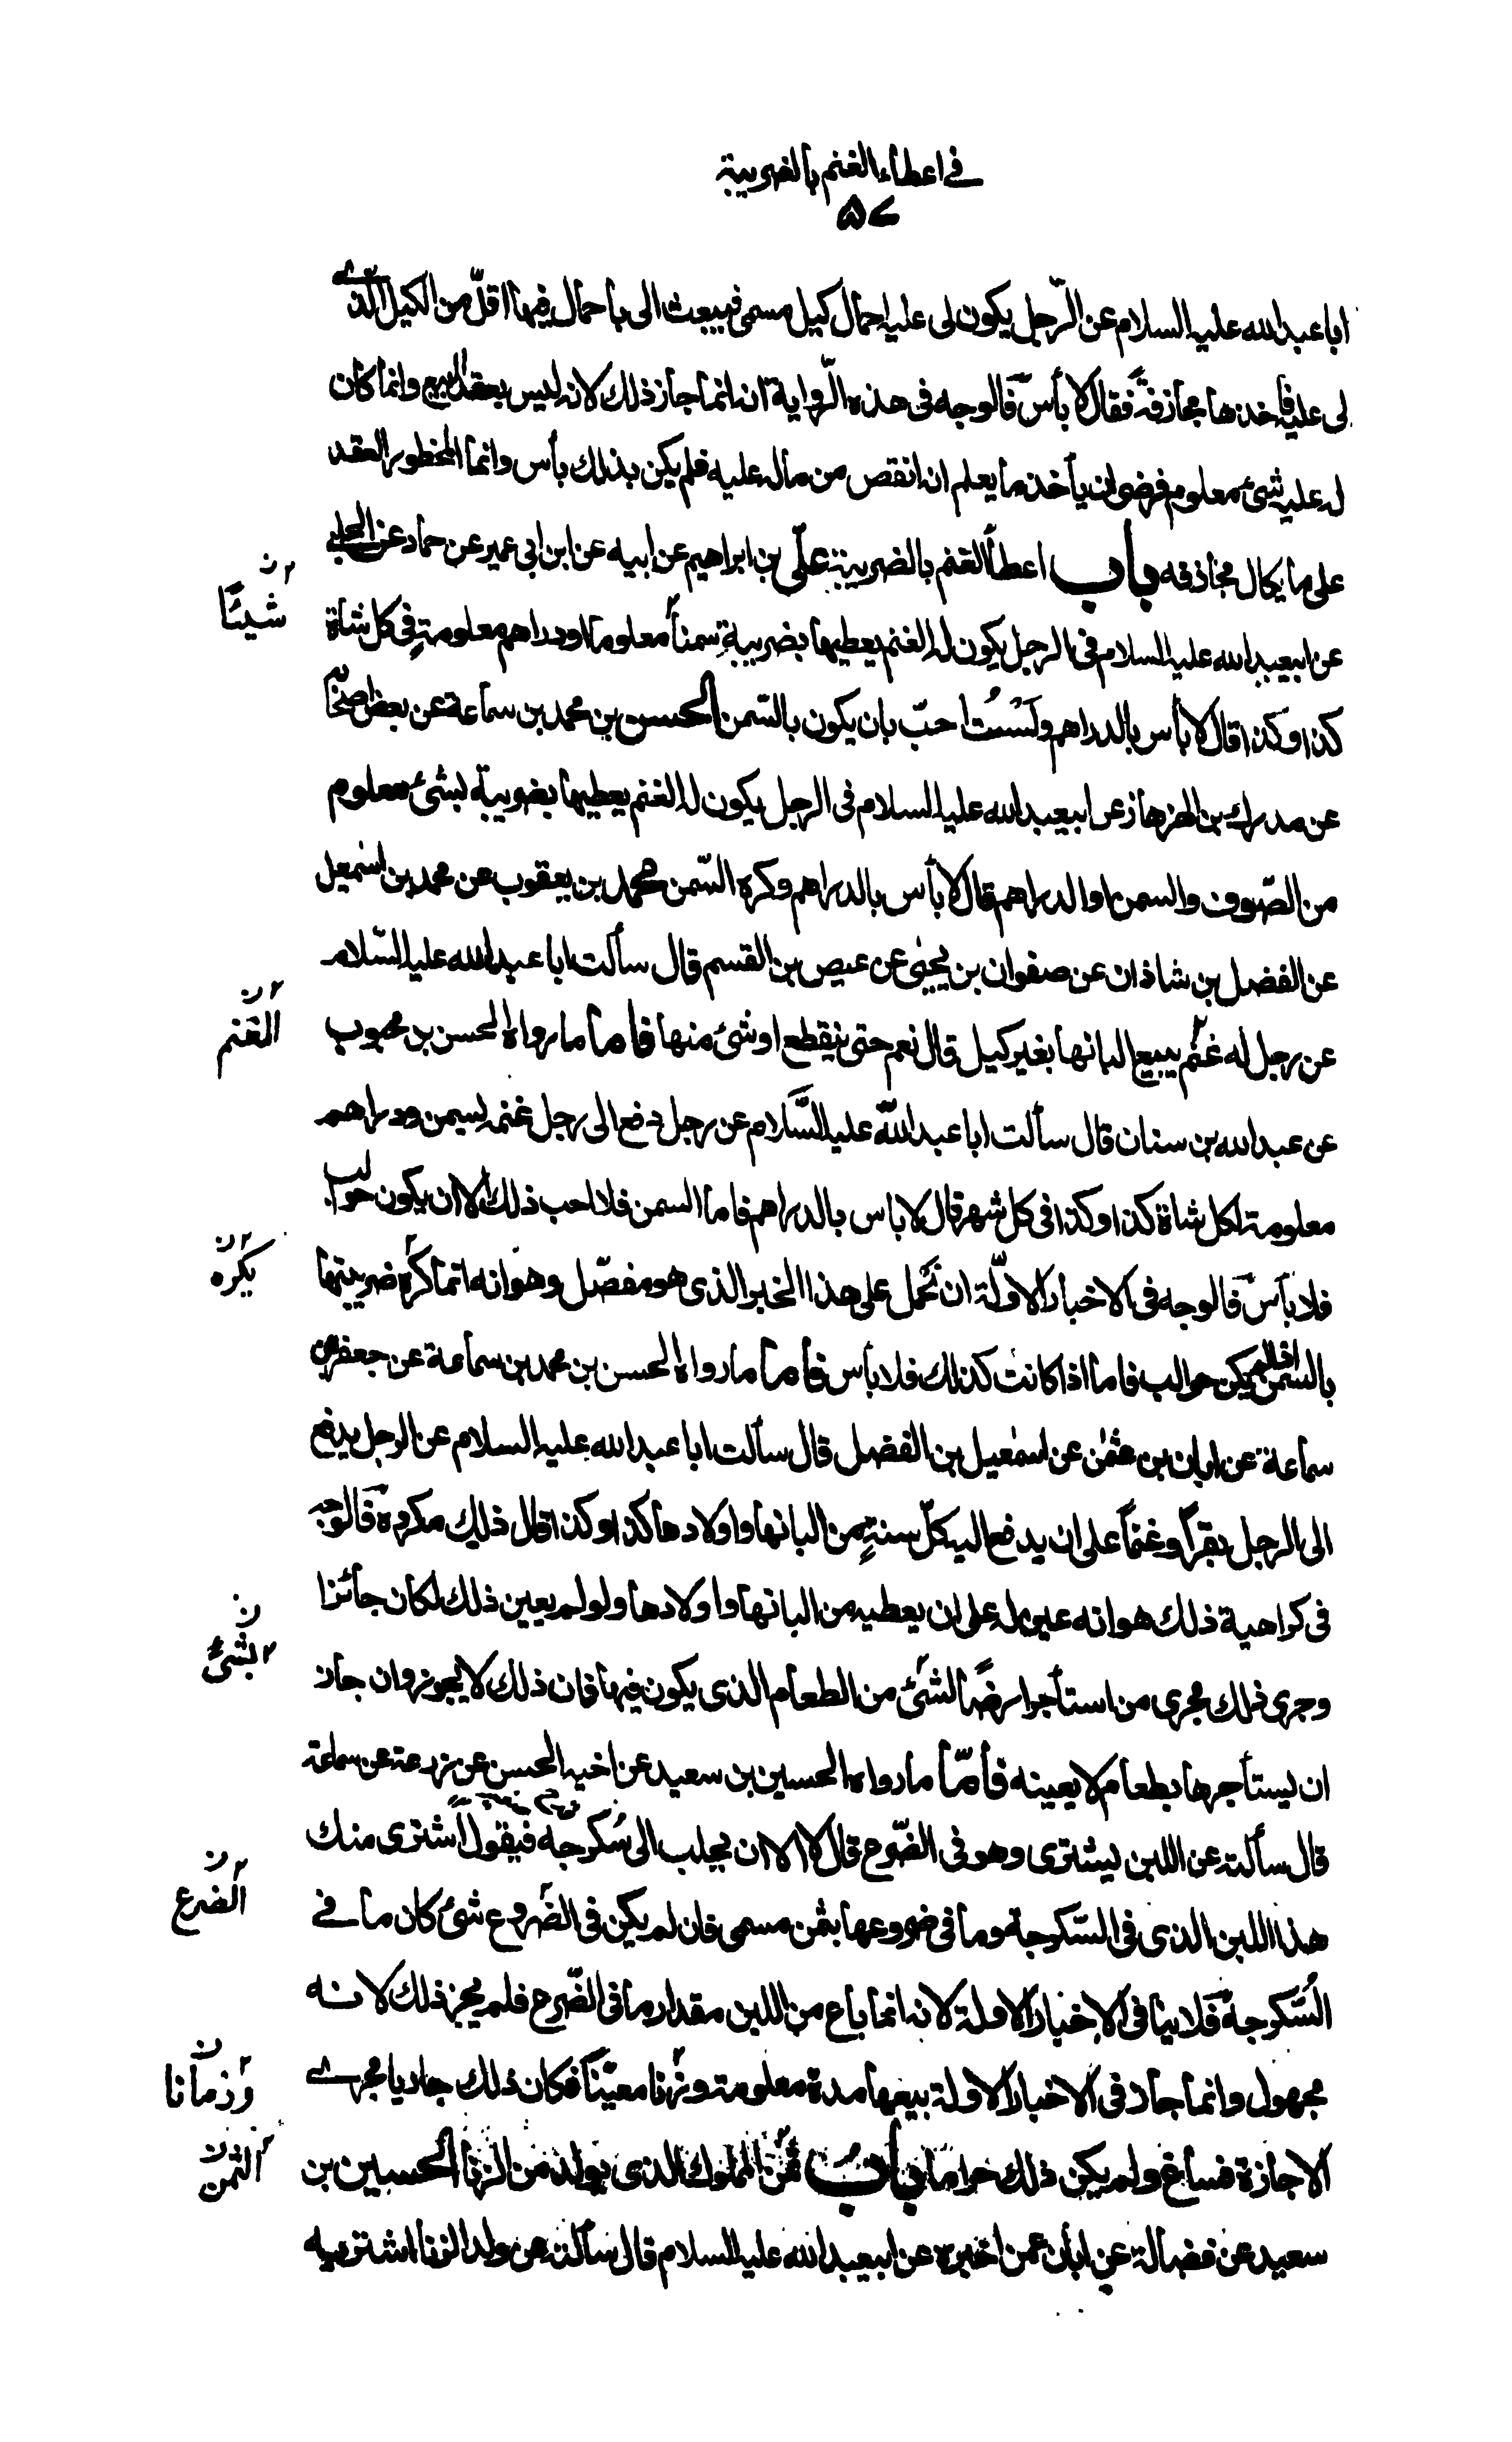 في اعطاء الغنم بالضريبة
۵۷
ابا عبدالله عليه السلام عن الرّجل يكون لى عليه احمال كيل مسمى فيبعث الى باحمال فيها اقلّ من الكيل الّذي
لى عليه فآخذها مجازفةً فقال لا بأس فالوجه فى هذه الرّواية انه انما جاز ذلك لانه ليس بعقد البيع وانما كان
له عليه شئ معلوم فرضى ان يأخذ ما يعلم انه انقص من ماله عليه فلم يكن بذلك بأس وانما المحظور العقد
على ما يكال مجاذفه باب اعطاء الغنم بالضريبة علىّ بن ابراهيم عن ابيه عن ابن ابى عمير عن حماد عن الحلبي
شيئًا ن
عن ابيعبد الله عليه السلام فى الرجل يكون له الغنم يعطيها بضريبةٍ سمناً معلوما او دراهم معلومةٍ فى كل شاة
كذا وكذا قال لا بأس بالدراهم ولَسْتُ احبّ بان يكون بالسّمن الحسن بن محمد بن سماعة عن بعض اصحابنا
عن مدرك بن الهزهاز عن ابيعبد الله عليه السلام فى الرجل يكون له الغنم يعطيها بضريبة بشئ معلوم
من الصّوف والسمن او الدراهم قال لا بأس بالدراهم وكره السّمن محمد بن يعقوب عن محمد بن اسمعيل
عن الفضل بن شاذان عن صفوان بن يحيى عن عيص بن القسم قال سألت ابا عبدالله عليه السّلام
الغنم ن
عن رجل له غنم يبيع البانها بغير كيل قال نعم حتى ينقطع او شئ منها فاما ما رواه الحسن بن محبوب
عن عبدالله بن سنان قال سألت ابا عبد اللّه عليه السَّلام عن رجل دفع الى رجل غنمه بسمن ودراهم
معلومة لكل شاة كذا وكذا فى كل شهر قال لا باس بالدراهم فاما السمن فلا احب ذلك الا ان يكون حوالب
يكره ن
فلا بأس فالوجه فى الاخبار الاولّة ان نحمل على هذا الخبر الذى هو مفصّل وهو انه انما كره ضريبتها
بالسمن اذا لم يكن حوالب فاما اذا كانت كذلك فلا بأس فاما ما رواه الحسن بن محمد بن سماعة عن جعفر بن
سماعة عن ابان بن عثمٰن عن اسمٰعيل بن الفضل قال سألت ابا عبدالله عليه السلام عن الرجل يدفع
الى الرجل بقراً وغنماً على ان يدفع اليه كلّ سنةٍ من البانها واولادها كذا وكذا قال ذلك مكروه فالوجه
فى كراهية ذلك هو انه عين له على ان يعطيه من البانها واولادها ولو لم يعين ذلك لكان جائزا
بشئ ن
وجرى ذلك مجرى من استأجر ارضًا الشئ من الطعام الذى يكون فيها فان ذلك لا يجوز وان جاز
ان يستأجرها بطعام لا يعينه فأمّا ما رواه الحسين بن سعيد عن اخيه الحسن عن زرعة عن سماعة
قال سألته عن اللبن يشترى وهو فى الضّرع قال لا الا ان يحلب الى سُكرجّه فيقول اشترى منك
الضرع ن
هذا اللبن الذى فى السّكرجة وما فى ضروعها بثمن مسمى فان لم يكن فى الضروع شئ كان ما في
السُّكرجة فلا ينافى الاخبار الاولة لانه انما باع من اللبن مقدار ما فى الضّرع فلم يجز ذلك لانه
وزمانا ن
مجهول وانما جاز فى الاخبار الاولة بيعها مدة معلومة وزمانا معيّناً فكان ذلك جاريا مجرى
الثمن ن
الاجازة فساغ ولم يكن ذلك حراما باب ثمن المملوك الذى يولد من الزنا الحسين بن
سعيد عن فضالة عن ابان عمن اخبره عن ابيعبد الله عليه السلام قال سألته عن ولد الزنا اشتريه